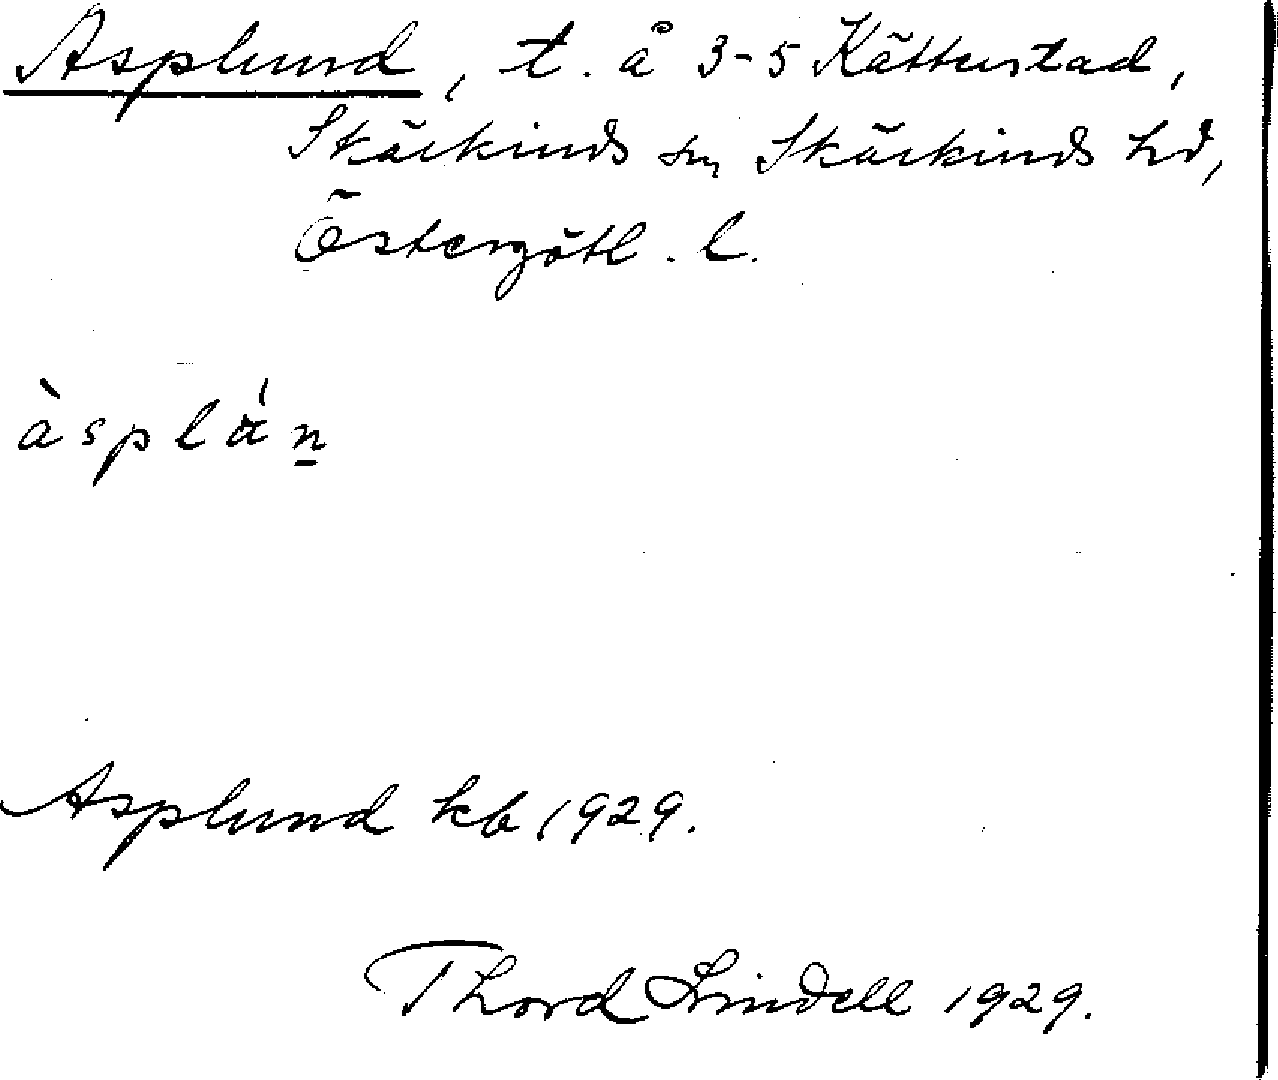 Asplund, t. å 3-5 Kättestad,
Skärkinds sn Skärkinds hd,
Östergötl. l.
àsplán̲
Asplund kb 1929.
Thord Lindell 1929.